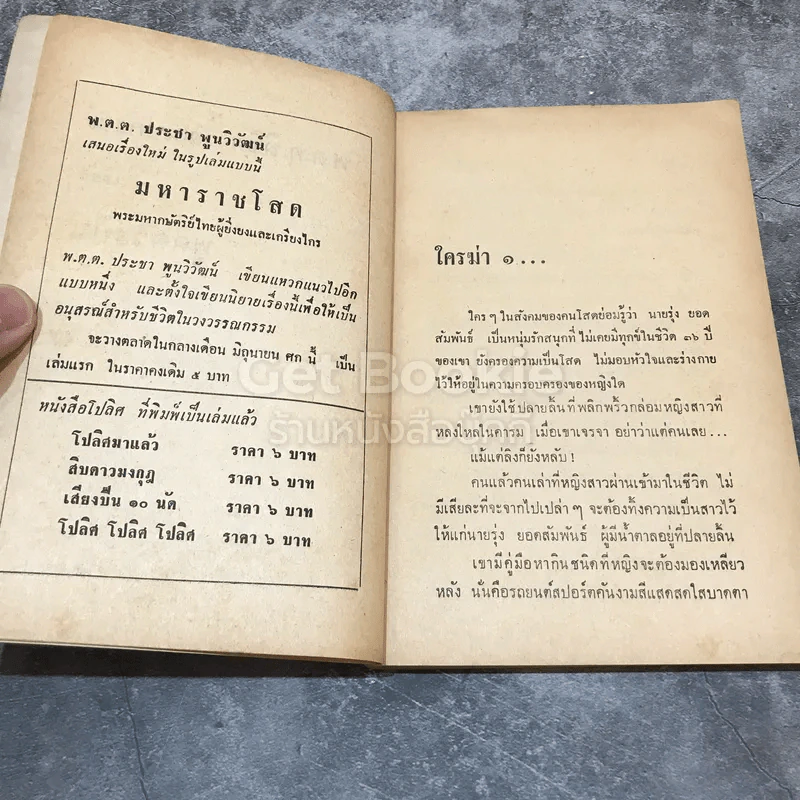 พ.ต.ต. ประชา พูนวิวัฒน์
เสนอเรื่องใหม่ ในรูปเล่มแบบนี้
มหาราชโสด
พระมหากษัตริย์ไทยผู้ยิ่งยงและเกรียงไกร
พ.ต.ต. ประชา พูนวิวัฒน์ เขียนแหวกแนวไปอีก
แบบหนึ่ง และตั้งใจเขียนนิยายเรื่องนี้เพื่อให้เป็น
อนุสรณ์สำหรับชีวิตในวงวรรณกรรม
จะวางตลาดในกลางเดือน มิถุนายน ศก นี้ เป็น
เล่มแรก ในราคาคงเดิม ๕ บาท
หนังสือโปลิศ ที่พิมพ์เป็นเล่มแล้ว
โปลิศมาแล้ว ราคา ๖ บาท
สิบดาวมงกุฎ ราคา ๖ บาท
เสียงปืน ๑๐ นัด ราคา ๖ บาท
โปลิศ โปลิศ โปลิศ ราคา ๖ บาท
ใครฆ่า ๑...
ใคร ๆ ในสังคมของคนโสดย่อมรู้ว่า นายรุ่ง ยอด
สัมพันธ์ เป็นหนุ่มรักสนุกที่ ไม่เคยมีทุกข์ในชีวิต ๓๖ ปี
ของเขา ยังครองความเป็นโสด ไม่มอบหัวใจและร่างกาย
ไว้ให้อยู่ในความครอบครองของหญิงใด
เขายังใช้ปลายลิ้นที่พลิกพริ้วกล่อมหญิงสาวที่
หลงใหลในคารม เมื่อเขาเจรจา อย่าว่าแต่คนเลย...
แม้แต่ลิงก็ยังหลับ!
คนแล้วคนเล่าที่หญิงสาวผ่านเข้ามาในชีวิต ไม่
มีเสียละที่จะจากไปเปล่า ๆ จะต้องทิ้งความเป็นสาวไว้
ให้แก่นายรุ่ง ยอดสัมพันธ์ ผู้มีน้ำตาลอยู่ที่ปลายลิ้น
เขามีคู่มือหากินชนิดที่หญิงจะต้องมองเหลียว
หลัง นั่นคือรถยนต์สปอร์ตคันงามสีแสดสดใสบาดตา
ร้านหนังสือ